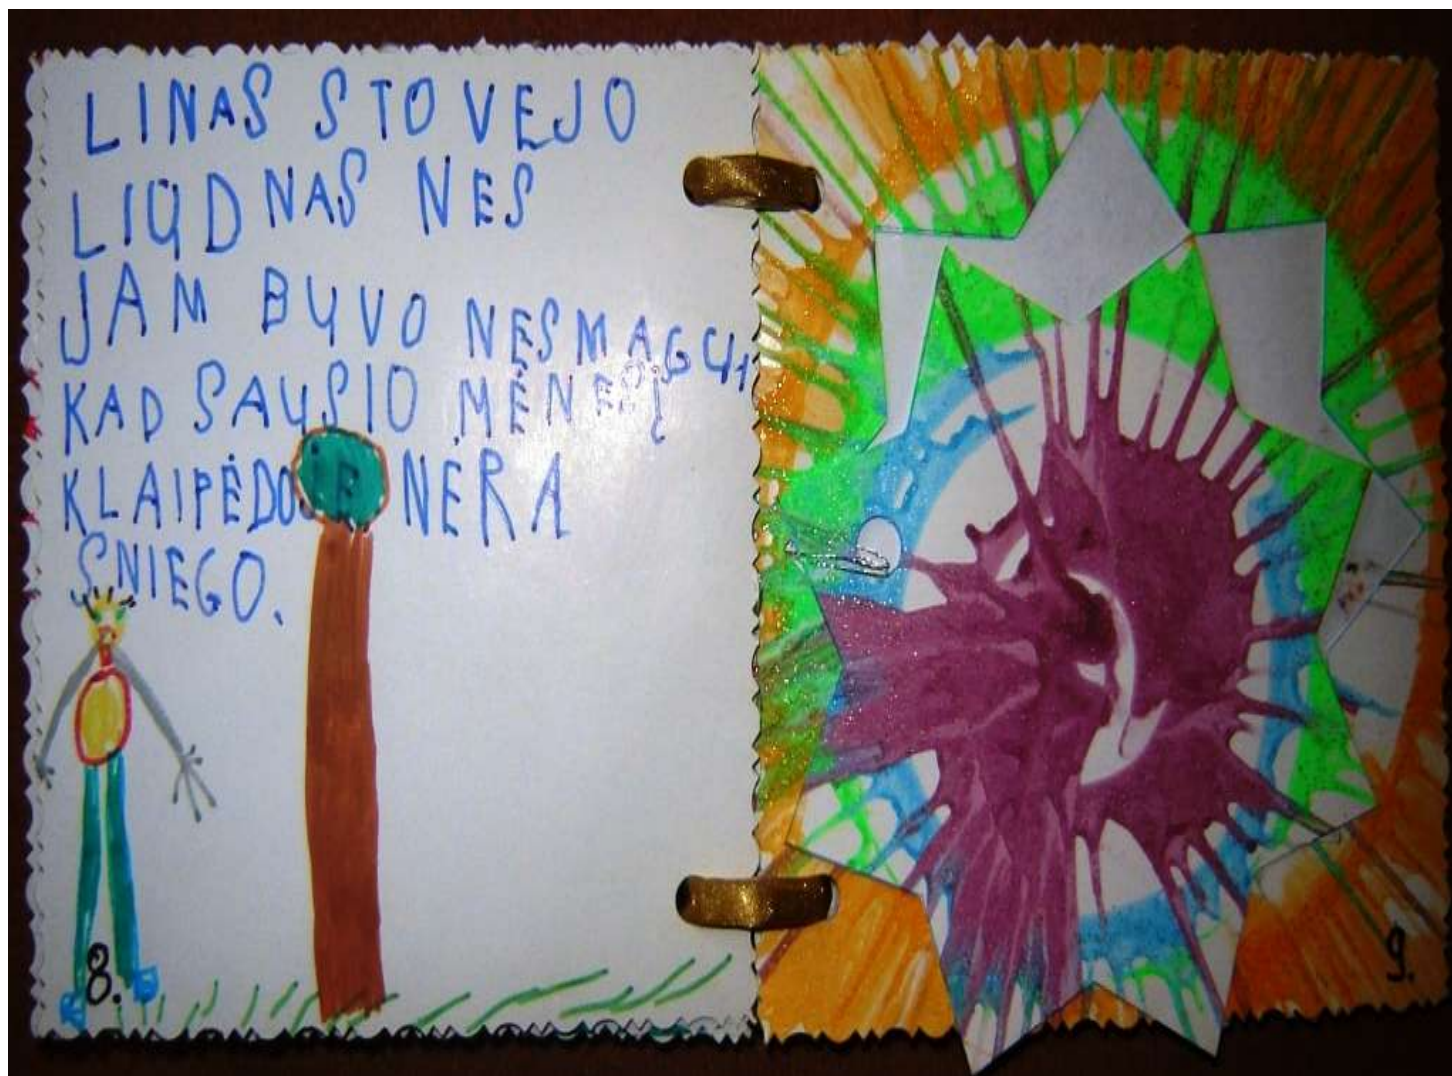 LINAS STOVEJO
LIŪDNAS NES
JAM BUVO NESMAGU,
KAD SAUSIO MĖNESĮ
KLAIPĖDOJE NĖRA
SNIEGO.
8.
9.